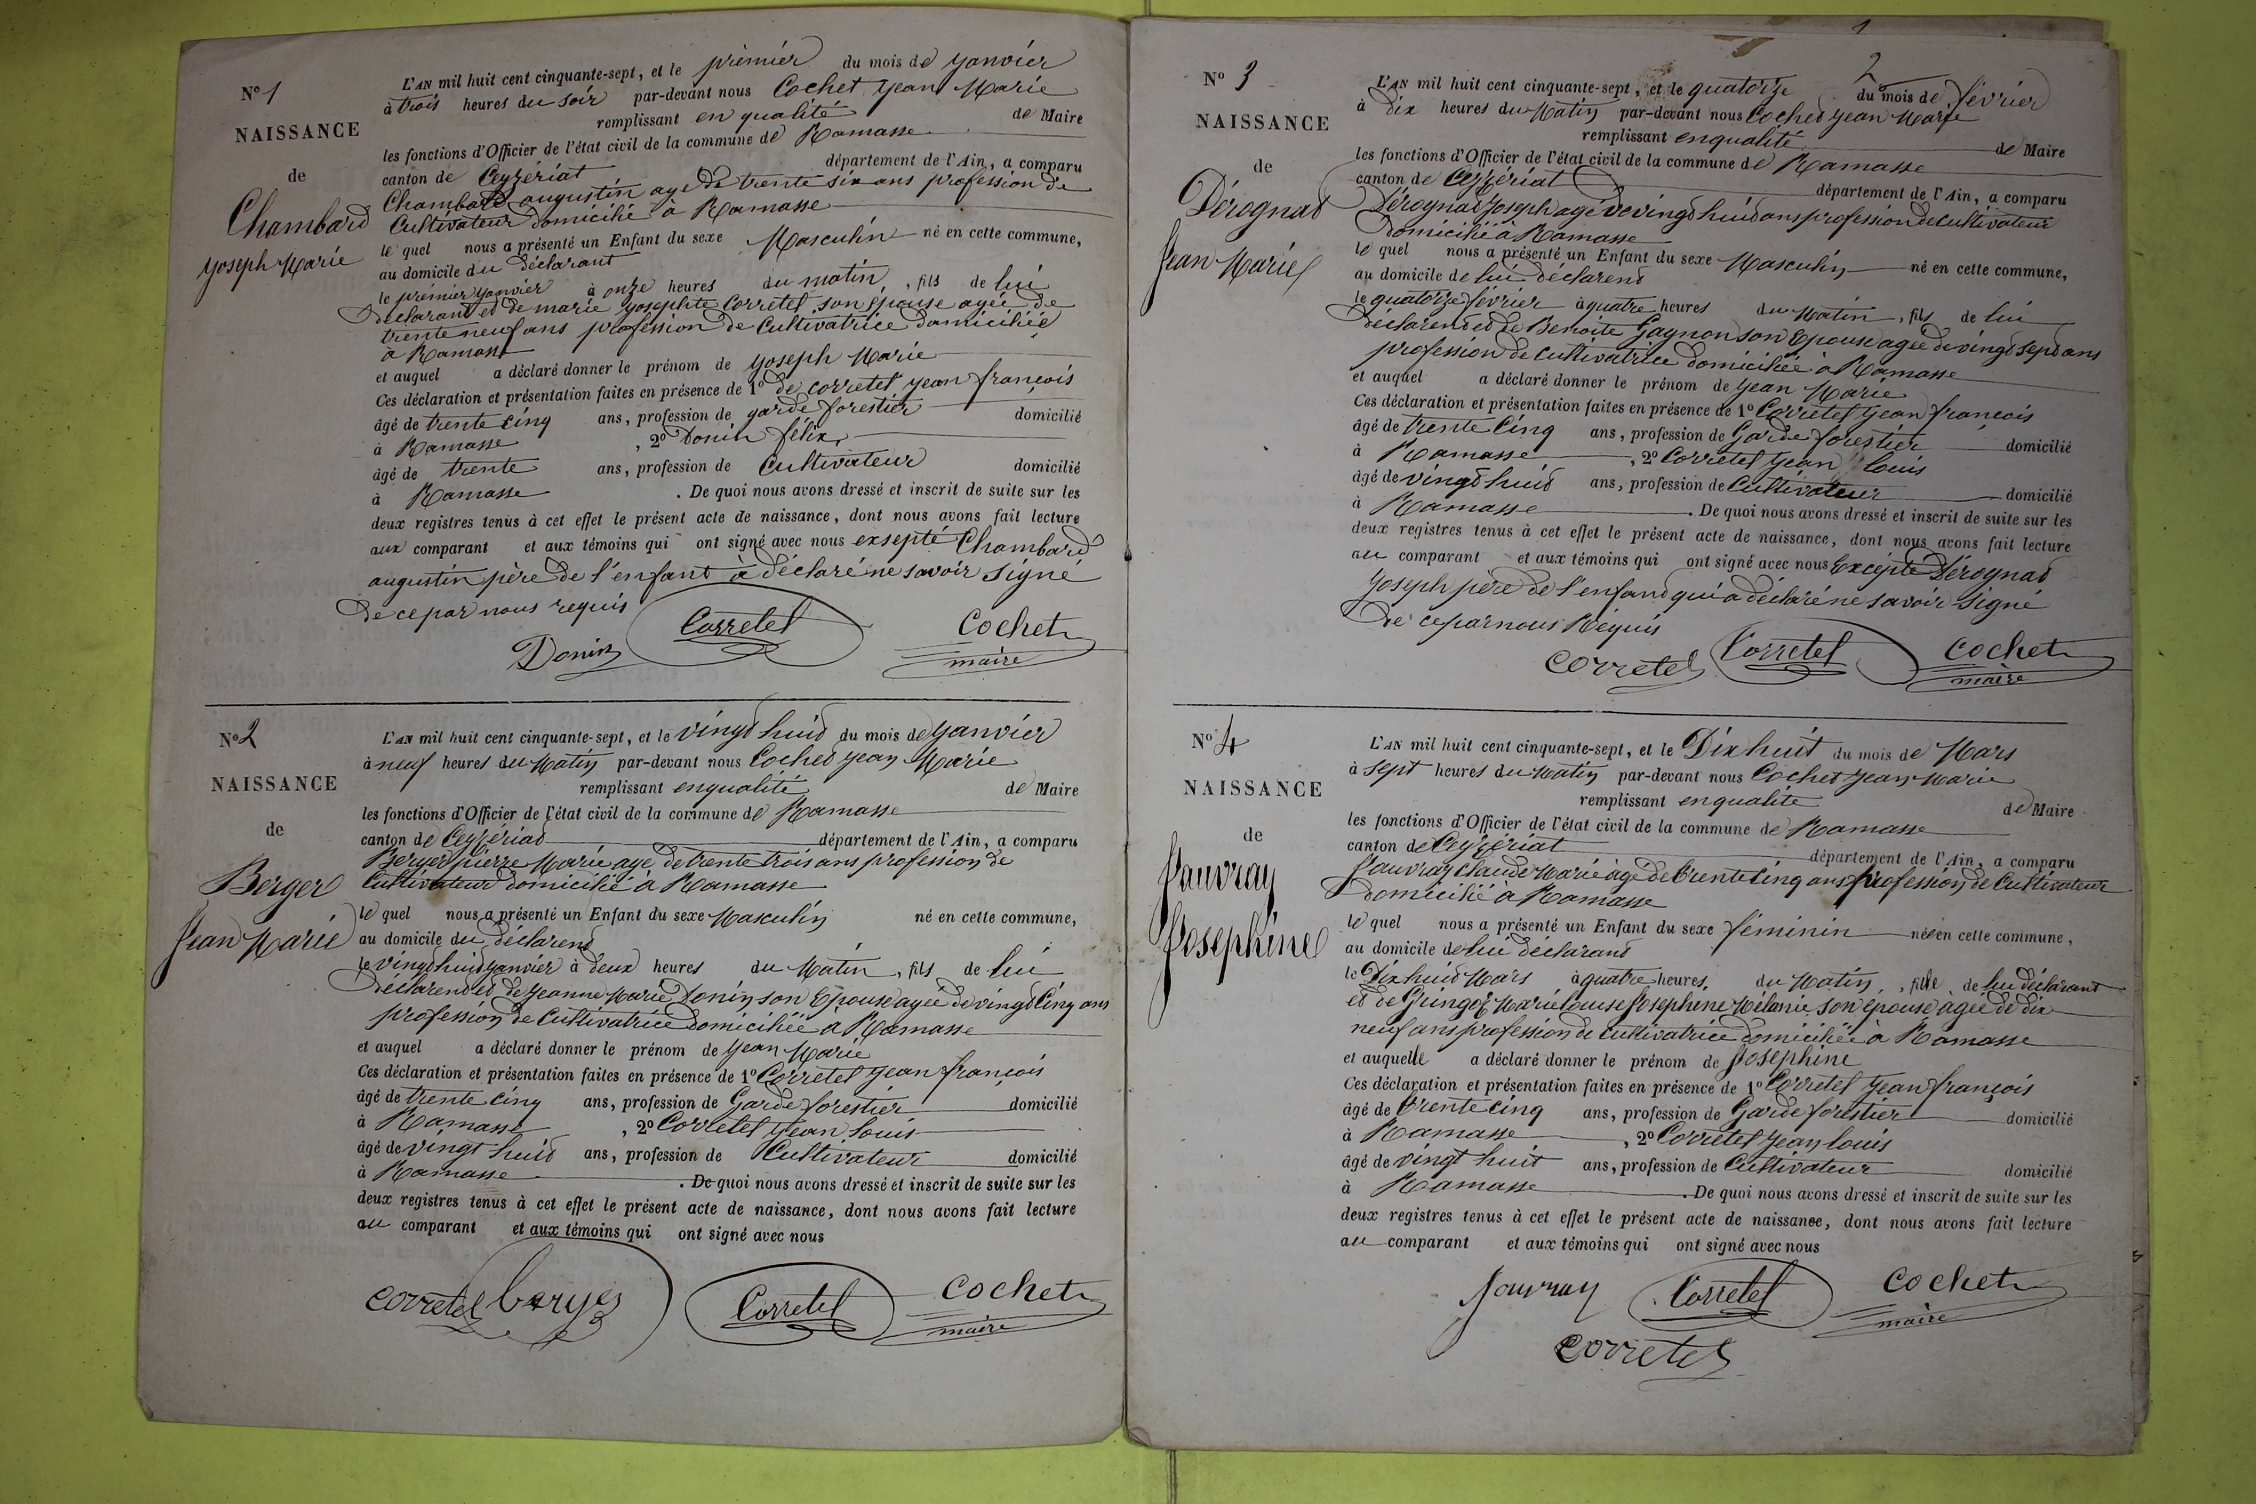 N° 1
NAISSANCE
de
Chambard
Joseph Marie
L'AN mil huit cent cinquante-sept, et le premier du mois de janvier
à trois heures du soir par-devant nous Cochet Jean Marie
remplissant en qualité de Maire
les fonctions d'Officier de l'état civil de la commune de Ramasse
canton de Ceyzériat département de l'Ain, a comparu
Chambard augustin age de trente six ans profession de
Cultivateur domicilié à Ramasse
le quel nous a présenté un Enfant du sexe Masculin né en cette commune,
au domicile du déclarant
le premier janvier à onze heures du matin, fils de lui
déclarant et de marie josephte Corretel son épouse agée de
trente neuf ans profession de Cultivatrice domiciliée
à Ramasse
et auquel a déclaré donner le prénom de joseph Marie
Ces déclaration et présentation faites en présence de 1° de Corretel jean françois
âgé de trente cinq ans, profession de garde forestier domicilié
à Ramasse, 2° Donin félix
âgé de trente ans, profession de Cultivateur domicilié
à Ramasse. De quoi nous avons dressé et inscrit de suite sur les
deux registres tenus à cet effet le présent acte de naissance, dont nous avons fait lecture
aux comparant et aux témoins qui ont signé avec nous exsepté Chambard
augustin père de l'enfant à déclaré ne savoir signé
de ce par nous requis
Donin Corretel Cochet
maire
N° 2
NAISSANCE
de
Berger
Jean Marie
L'AN mil huit cent cinquante-sept, et le vingt huit du mois de janvier
à neuf heures du Matin par-devant nous Cochet jean Marie
remplissant en qualité de Maire
les fonctions d'Officier de l'état civil de la commune de Ramasse
canton de Ceyzériat département de l'Ain, a comparu
Berger pierre Marie age de trente trois ans profession de
Cultivateur domicilié à Ramasse
le quel nous a présenté un Enfant du sexe Masculin né en cette commune,
au domicile du déclarend
le vingt huit janvier à deux heures du Matin, fils de lui
déclarend et de jeanne Marie Donin son Epouse agée de vingt Cinq ans
profession de Cultivatrice domiciliée à Ramasse
et auquel a déclaré donner le prénom de jean Marie
Ces déclaration et présentation faites en présence de 1° Corretel jean françois
âgé de trente cinq ans, profession de Garde forestier domicilié
à Ramasse, 2° Corretel jean louis
âgé de vingt huit ans, profession de Cultivateur domicilié
à Ramasse. De quoi nous avons dressé et inscrit de suite sur les
deux registres tenus à cet effet le présent acte de naissance, dont nous avons fait lecture
au comparant et aux témoins qui ont signé avec nous
Corretel berger Corretel Cochet
maire
1
2
N° 3
NAISSANCE
de
Dérognat
Jean Marie
L'AN mil huit cent cinquante-sept, et le quatorze du mois de février
à dix heures du Matin par-devant nous Cochet jean Marie
remplissant en qualité de Maire
les fonctions d'Officier de l'état civil de la commune de Ramasse
canton de Ceyzériat département de l'Ain, a comparu
Dérognat joseph agé de vingt huit ans profession de cultivateur
domicilié à Ramasse
le quel nous a présenté un Enfant du sexe Masculin né en cette commune,
au domicile de lui déclarend
le quatorze février à quatre heures du Matin, fils de lui
déclarend et de Benoite Gagnon son Epouse agée de vingt sept ans
profession de cultivatrice domiciliée à Ramasse
et auquel a déclaré donner le prénom de jean Marie
Ces déclaration et présentation faites en présence de 1° Corretel jean françois
âgé de trente Cinq ans, profession de Garde forestier domicilié
à Ramasse, 2° Corretel jean louis
âgé de vingt huit ans, profession de Cultivateur domicilié
à Ramasse. De quoi nous avons dressé et inscrit de suite sur les
deux registres tenus à cet effet le présent acte de naissance, dont nous avons fait lecture
au comparant et aux témoins qui ont signé avec nous Excépté Dérognat
joseph père de l'enfand qui a déclaré ne savoir signé
de ce par nous Réquis
Corretel Corretel Cochet
maire
N° 4
NAISSANCE
de
Jauvray
Josephine
L'AN mil huit cent cinquante-sept, et le Dix huit du mois de Mars
à sept heures du matin par-devant nous Cochet jean Marie
remplissant en qualité de Maire
les fonctions d'Officier de l'état civil de la commune de Ramasse
canton de Ceyzériat département de l'Ain, a comparu
Jauvray Claude Marie agé de trente Cinq ans profession de Cultivateur
domicilié à Ramasse
le quel nous a présenté un Enfant du sexe féminin née en cette commune,
au domicile de lui déclarand
le Dix huit Mars à quatre heures du Matin, fille de lui déclarant
et de Gringoz Marie Louise Josephine Mélanie son épouse agée de dix
neuf ans profession de cultivatrice domiciliée à Ramasse
et auquelle a déclaré donner le prénom de Josephine
Ces déclaration et présentation faites en présence de 1° Corretel jean françois
âgé de trente cinq ans, profession de Garde forestier domicilié
à Ramasse, 2° Corretel jean louis
âgé de vingt huit ans, profession de Cultivateur domicilié
à Ramasse. De quoi nous avons dressé et inscrit de suite sur les
deux registres tenus à cet effet le présent acte de naissance, dont nous avons fait lecture
au comparant et aux témoins qui ont signé avec nous
Jauvray Corretel Cochet
maire
Corretel